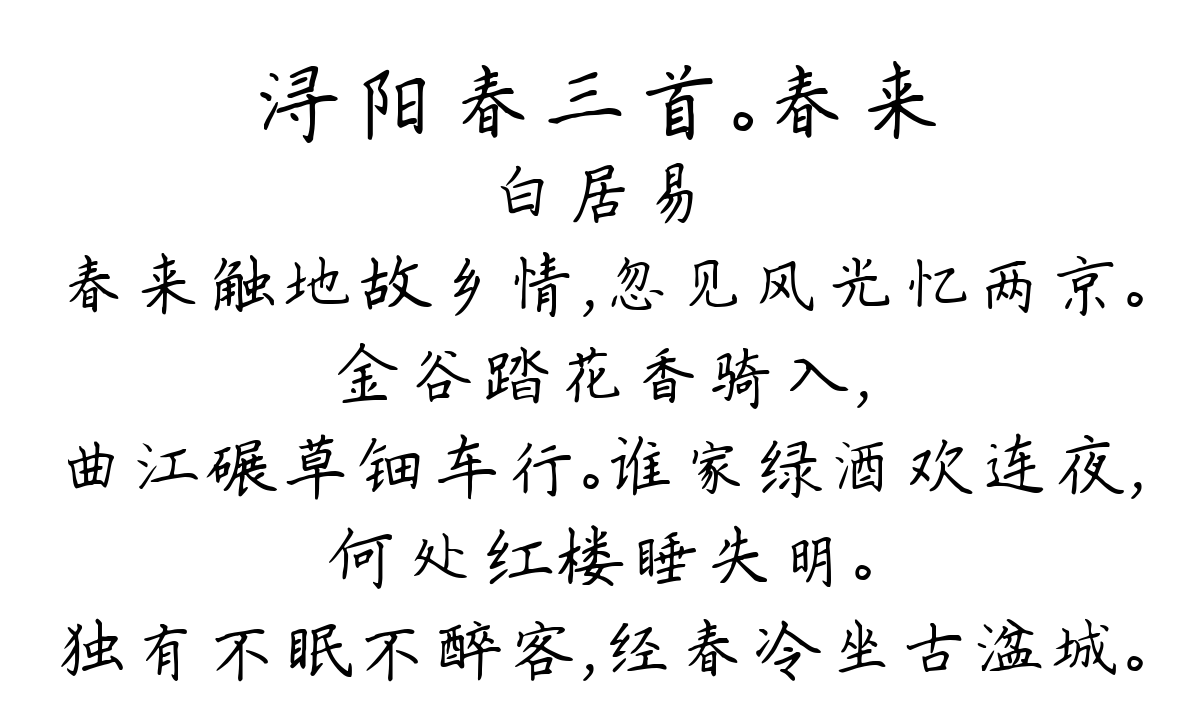 浔阳春三首。春来
白居易
春来触地故乡情,忽见风光忆两京。
金谷踏花香骑入,
曲江碾草钿车行。谁家绿酒欢连夜,
何处红楼睡失明。
独有不眠不醉客,经春冷坐古湓城。